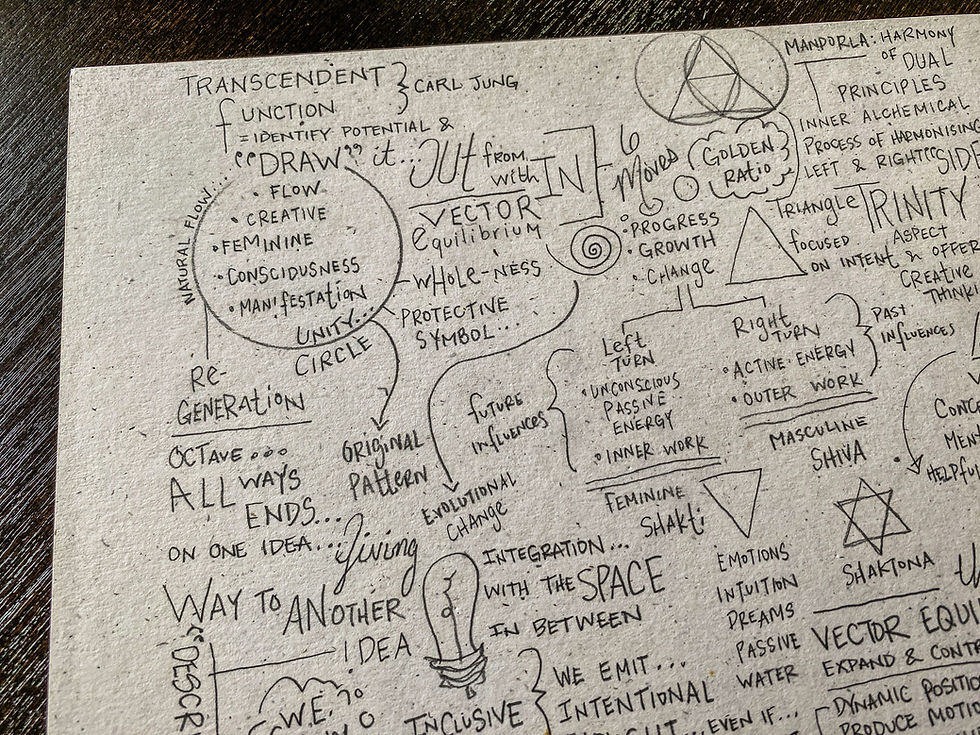 TRANSCENDENT
FUNCTION
CARL JUNG
= IDENTIFY POTENTIAL &
"DRAW" it... OUT from
within IN
NATURAL FLOW...
• FLOW
• CREATIVE
• FEMININE
• CONSCIOUSNESS
• MANIFESTATION
UNITY...
CIRCLE
VECTOR
Equilibrium
WHOLE-NESS
PROTECTIVE
SYMBOL...
6
Moves
• PROGRESS
• GROWTH
• CHANGE
GOLDEN
RATIO
MANDORLA: HARMONY
OF DUAL
PRINCIPLES
INNER ALCHEMICAL
PROCESS OF HARMONISING
LEFT & RIGHT "SIDE
TRIANGLE TRINITY
focused ASPECT
ON INTENT & OFFER
CREATIVE
THINKI
Left
TURN
• UNCONSCIOUS
PASSIVE
ENERGY
• INNER WORK
FEMININE
SHAKTI
future
influences
Right
TURN
• ACTIVE ENERGY
• OUTER WORK
MASCULINE
SHIVA
PAST
influences
CONC
MEN
HELPFU
RE-
GENERATION
OCTAVE...
ALL WAYS
ENDS...
ON ONE IDEA... Giving
WAY TO ANOTHER
IDEA
ORIGINAL
PATTERN
EVOLUTIONAL
CHANGE
INTEGRATION...
WITH THE SPACE
IN BETWEEN
EMOTIONS
INTUITION
DREAMS
PASSIVE
WATER
SHAKTONA
VECTOR EQUI
EXPAND & CONTR
DYNAMIC POSITIO
PRODUCE MOTIO
"DESCR
W.E.
INCLUSIVE
WE EMIT...
INTENTIONAL
THOUGHT... EVEN IF...